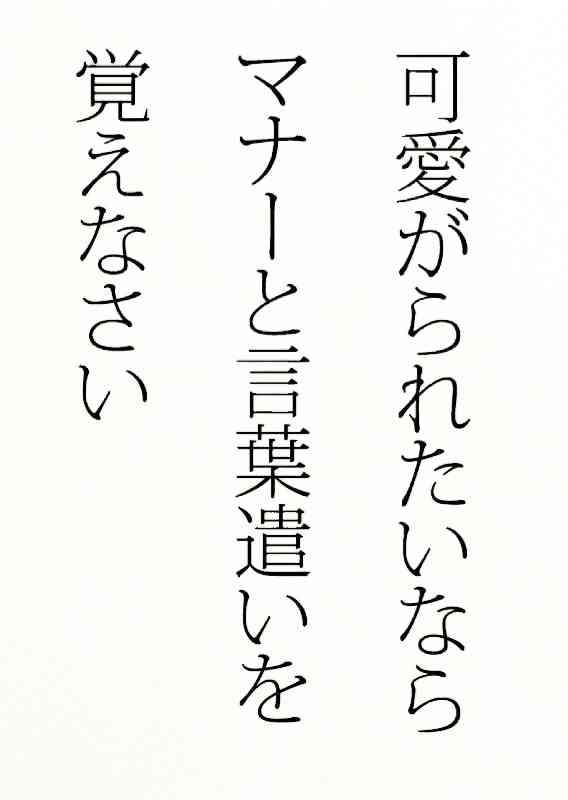 可愛がられたいなら
マナーと言葉遣いを
覚えなさい